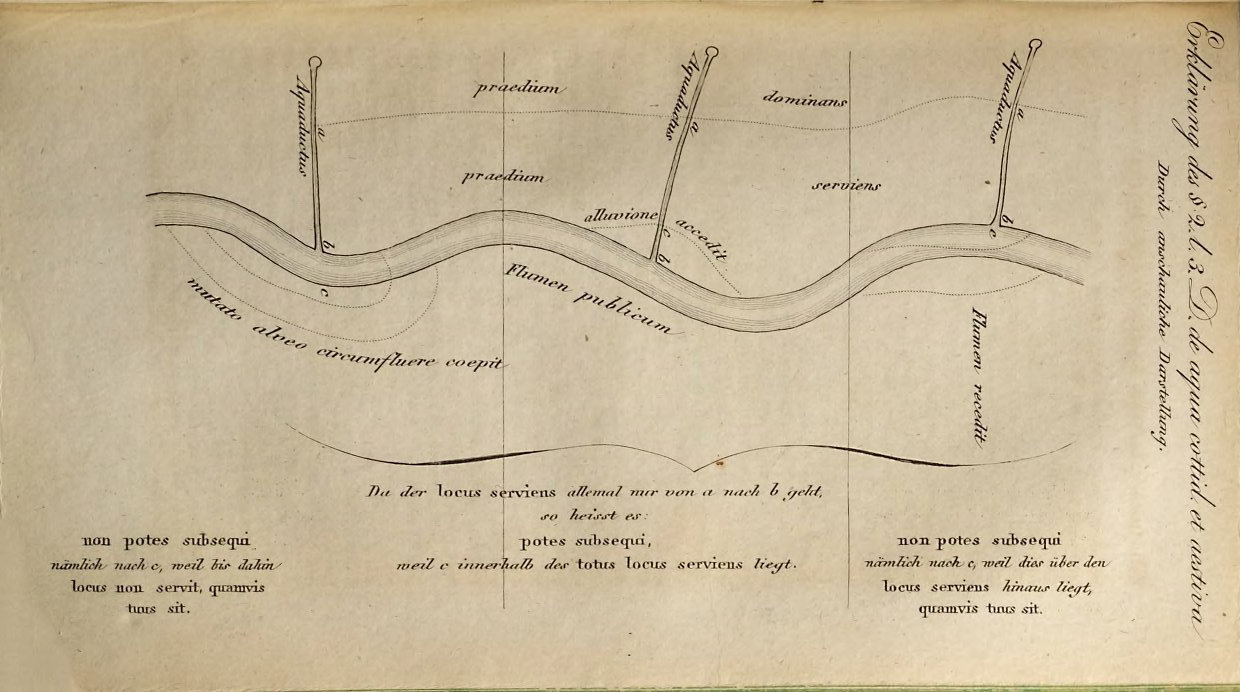 Erklärung des § 2. l. 3. D. de aqua cottid. et aestiva
Durch anschauliche Darstellung.
praedium
dominans
Aquaductus
a
Aquaductus
a
Aquaductus
a
praedium
serviens
alluvione
accedit
b
c
c
b
b
c
Flumen publicum
mutato alveo circumfluere coepit
Flumen recedit
Da der locus serviens allemal nur von a nach b geht,
so heisst es:
non potes subsequi
nämlich nach c, weil bis dahin
locus non servit, quamvis
tuus sit.
potes subsequi,
weil c innerhalb des totus locus serviens liegt.
non potes subsequi
nämlich nach c, weil dies über den
locus serviens hinaus liegt,
quamvis tuus sit.